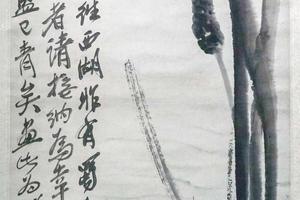 往西湖非有蜀
者請接納為幸
已青矣畫此為